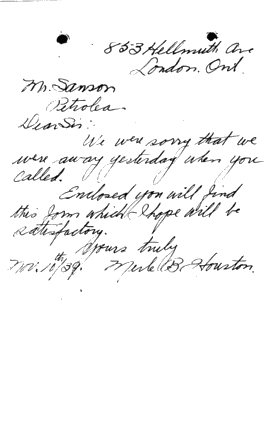 853 Hellmuth Ave
London, Ont.
Mr. Samson
Petrolea.
Dear Sir:
We were sorry that we
were away yesterday when you
called.
Enclosed you will find
this form which I hope will be
satisfactory.
Yours truly
Nov. 10th/39. Merle B. Houston.